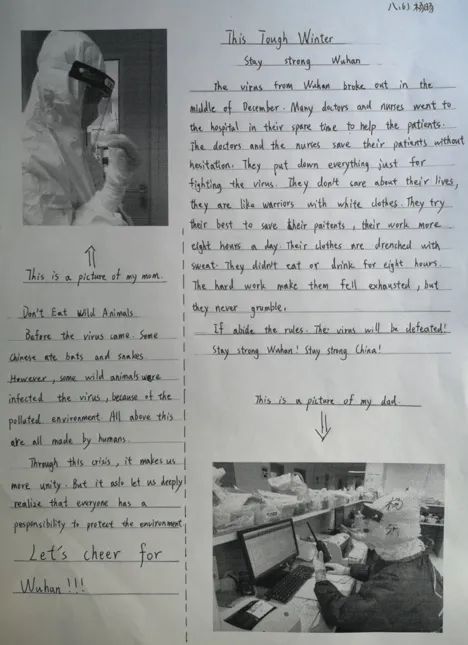 八.(6) 杨旸
This Tough Winter
Stay strong Wuhan
The virus from Wuhan broke out in the
middle of December. Many doctors and nurses went to
the hospital in their spare time to help the patients.
The doctors and the nurses save their patients without
hesitation. They put down everything just for
fighting the virus. They don't care about their lives,
they are like warriors with white clothes. They try
their best to save their paitents, their work more
eight hours a day. Their clothes are drenched with
sweat. They didn't eat or drink for eight hours.
The hard work make them fell exhausted, but
they never grumble.
If abide the rules. The virus will be defeated!
Stay strong Wuhan! Stay strong China!
This is a picture of my mom.
Don't Eat Wild Animals
Before the virus came. Some
Chinese ate bats and snakes
However, some wild animals were
infected the virus, because of the
polluted environment. All above this
are all made by humans.
Through this crisis, it makes us
more unity. But it aslo let us deeply
realize that everyone has a
responsibility to protect the environment
Let's cheer for
Wuhan!!!
This is a picture of my dad.